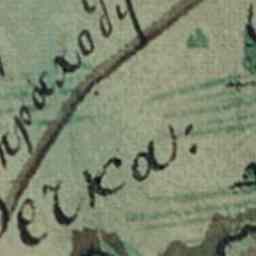 проходу
ечка: